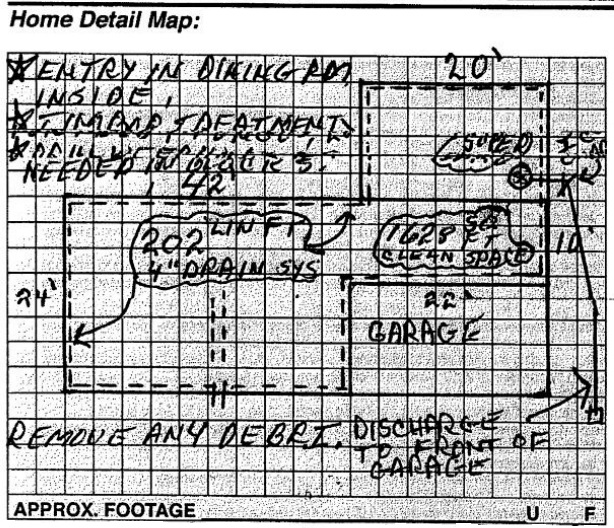 Home Detail Map:
ENTRY IN DINING RM
INSIDE,
TIMEND TREATMENT
NEEDED IN BLOCK'S.
42
20'
202 LIN FT
4" DRAIN SYS
1628 SQ FT
CLEAN SPACE
10'
24'
22'
GARAGE
REMOVE ANY DEBRI.
DISCHARGE
TO FRONT OF
GARAGE
APPROX. FOOTAGE
U F